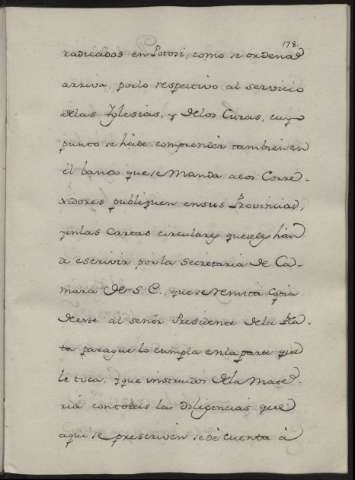 178.
radicados en Potosi, como se ordena
arriva, por lo respectivo al servicio
de las Yglesias, y de los Curas, cuyo
punto se hade comprender tambien en
el bando que se manda a los Corre-
xidores publiquen en sus Provincias,
y en las Cartas circulares que se les hán
a escrivir por la Secretaria de Ca-
mara de S. E. que se remita Copia
de este al señor Presidente de la Pla-
ta para que lo cumpla en la parte que
le toca, y que instruido de la Mate-
ria con todas las diligencias que
aqui se prescriven se dé cuenta á